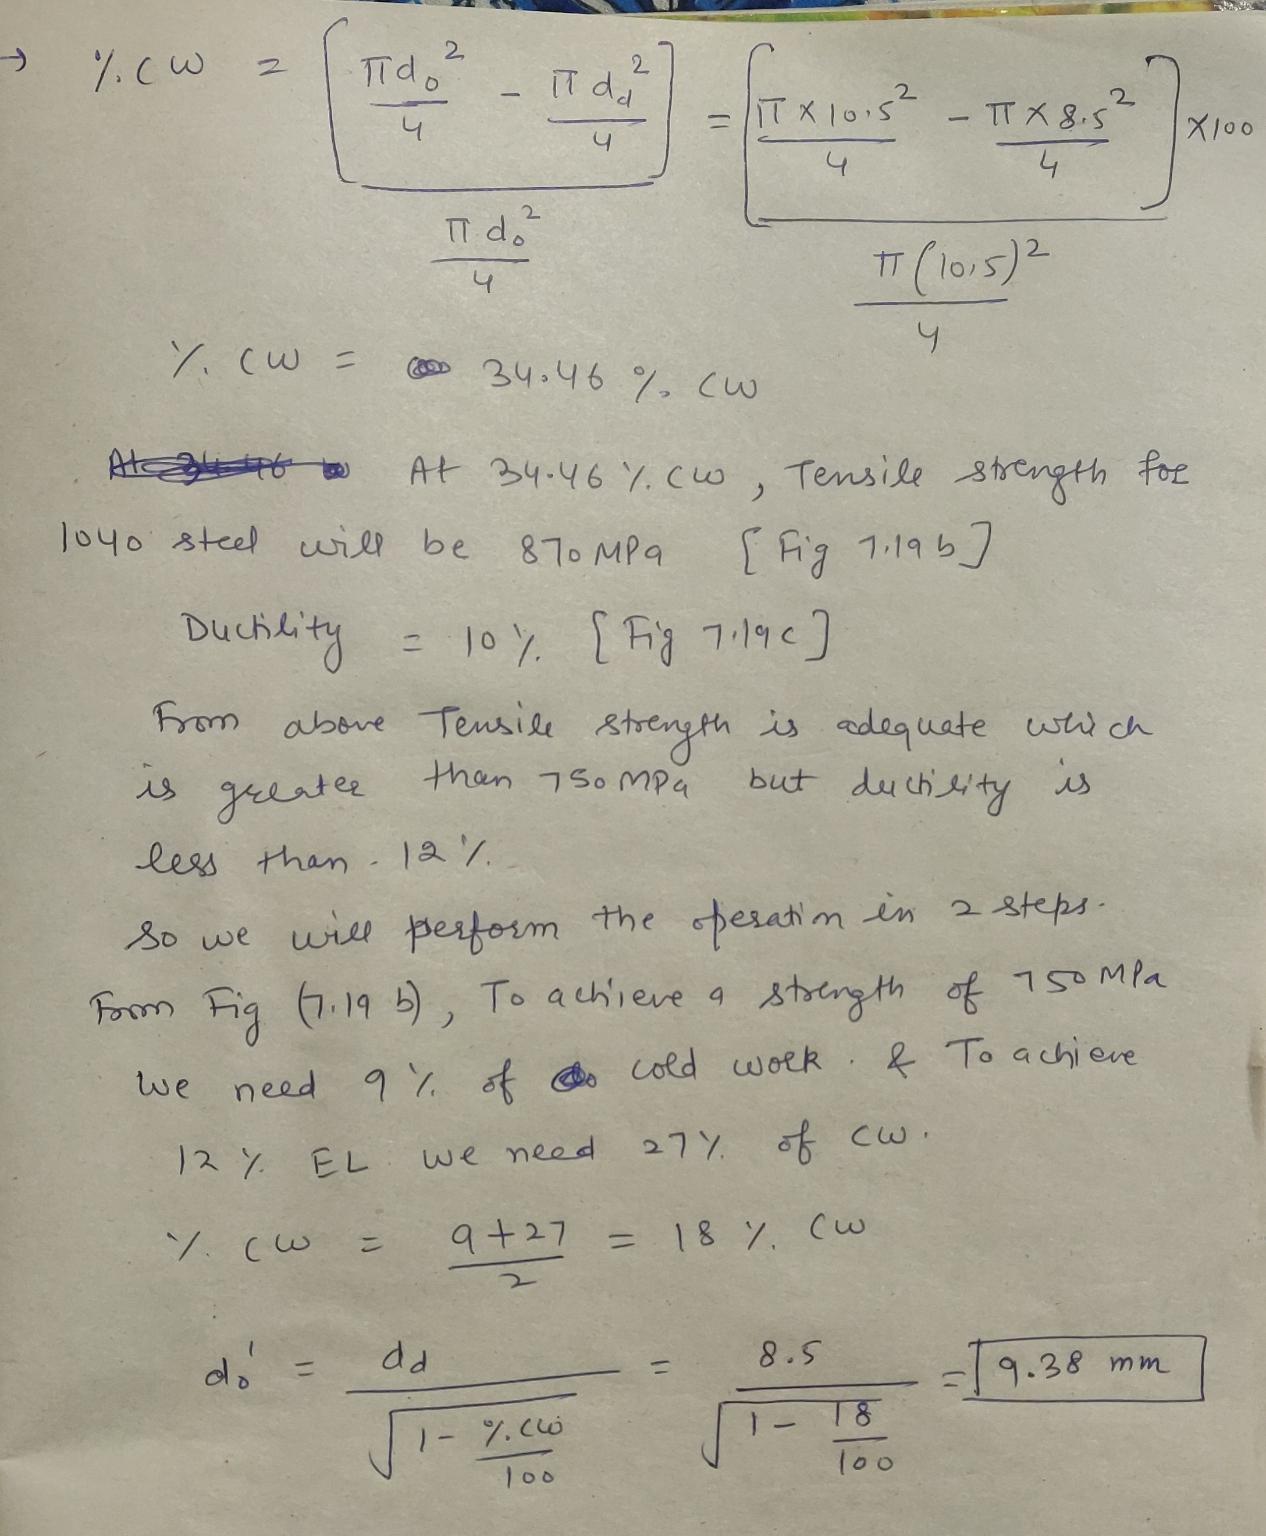 → %.CW = [πd₀²/4 - πd_d²/4] / (πd₀²/4) = [π×10.5²/4 - π×8.5²/4] / (π(10.5)²/4) ×100
%. CW = 34.46 %. CW
At 34.46 %. CW, Tensile strength for
1040 steel will be 870 MPa [Fig 7.19 b]
Ductility = 10 %. [Fig 7.19c]
From above Tensile strength is adequate which
is greater than 750 MPa but ductility is
less than 12 %.
So we will perform the operation in 2 steps.
From Fig (7.19 b), To achieve a strength of 750 MPa
we need 9 %. of cold work. & To achieve
12 %. EL we need 27 %. of CW.
%. CW = (9+27)/2 = 18 %. CW
d₀' = d_d / √(1 - %.CW/100) = 8.5 / √(1 - 18/100) = 9.38 mm